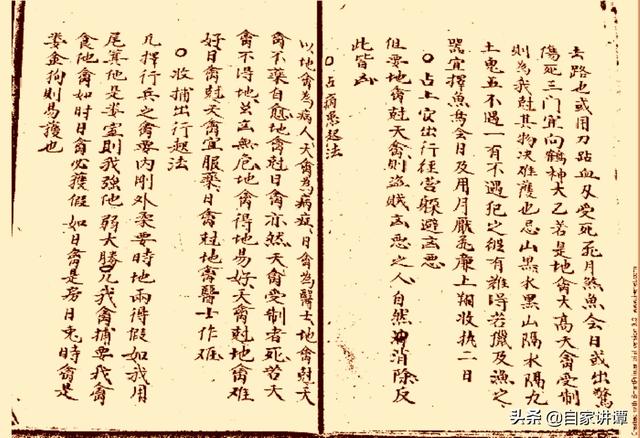 去路也或用刀砧血及受死飛月煞魚會日或出驚
傷死三门宜向鶴神大乙若是地禽大高天禽受制
則為我尅其物决难獲也忌山黑水黑山隔水隔九
土鬼五不遇一有不遇犯之彼有难得若獵及漁之
噐宜擇魚會日及用月厭飛廉上朔收执二日
○占上官出行徑营躱避凶悪
但要地禽尅天禽則盗贼凶悪之人自然消除反
此皆凶
○占病患起法
以地禽為病人天禽為病症日禽為醫士地禽尅天
禽不藥自愈地禽尅日禽亦然天禽受制者死若天
禽不得地并凶無危地禽得地易好天禽尅地禽难
好日禽尅天禽宜服藥日禽尅地禽醫士作难
○收捕出行起法
凢擇行兵之禽要内剛外柔要時地兩得假如我用
尾箕他是婁室則我強他弱大勝凢我禽捕要我禽
食他禽如時日禽必獲假如日禽是房日兎時禽是
婁金狗則易獲也
头条 @自家讲谭